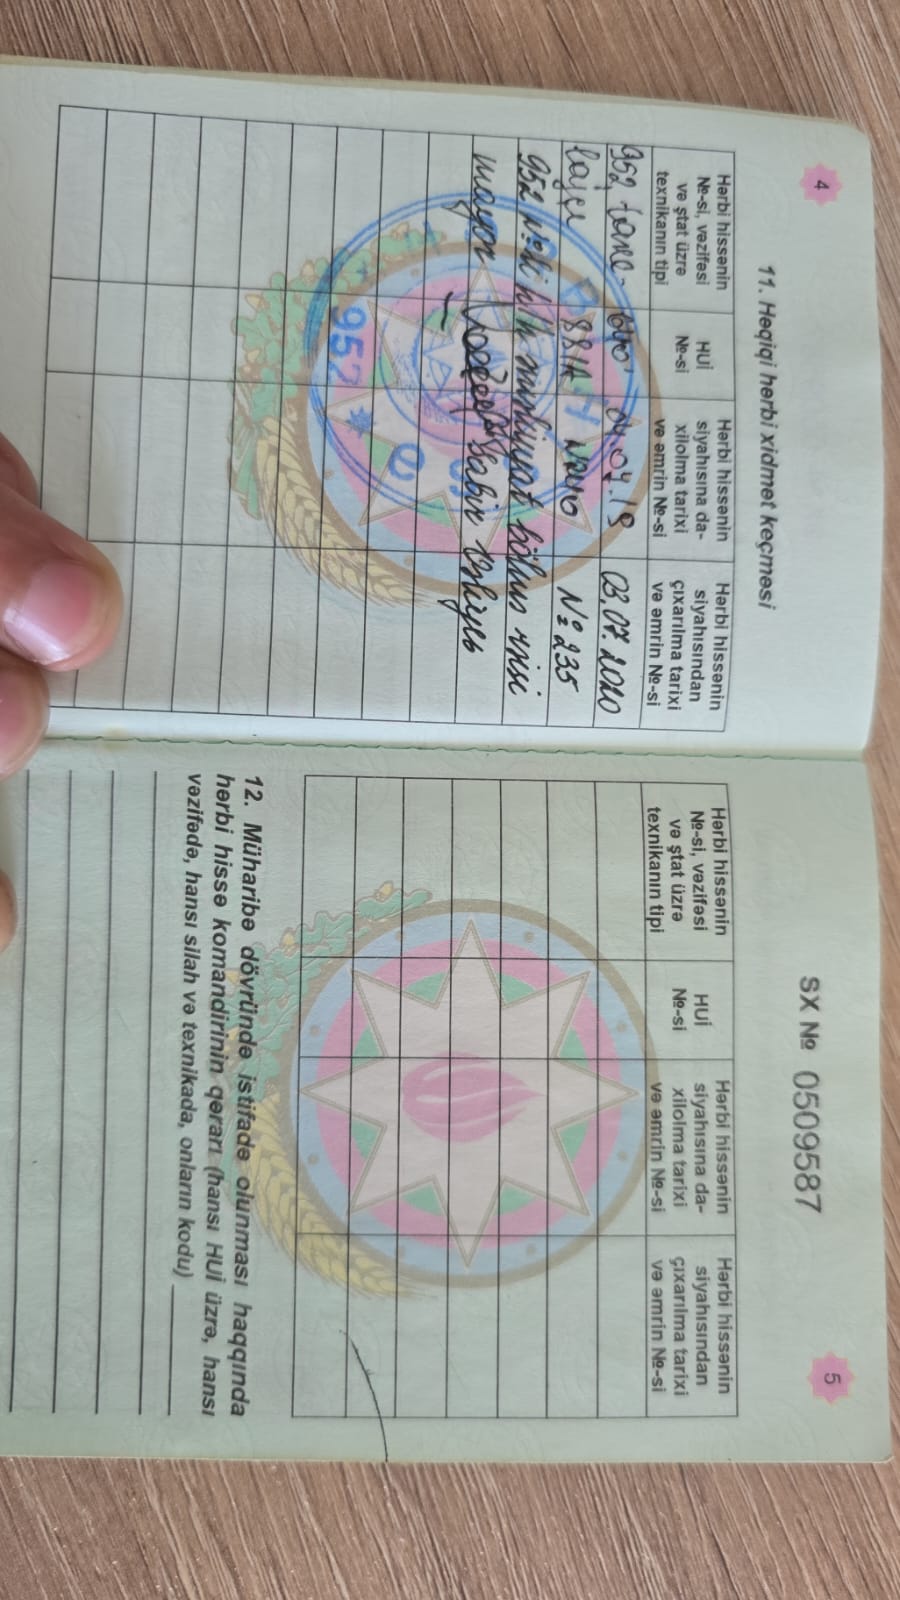 4
11. Həqiqi hərbi xidmət keçməsi
Hərbi hissənin №-si, vəzifəsi və ştat üzrə texnikanın tipi
HUİ №-si
Hərbi hissənin siyahısına daxilolma tarixi və əmrin №-si
Hərbi hissənin siyahısından çıxarılma tarixi və əmrin №-si
952 04.04.19 03.07.2020
№ 235
952 №-li h/h bölüs rəisi
mayor Sabir
952
SX № 0509587
5
Hərbi hissənin №-si, vəzifəsi və ştat üzrə texnikanın tipi
HUİ №-si
Hərbi hissənin siyahısına daxilolma tarixi və əmrin №-si
Hərbi hissənin siyahısından çıxarılma tarixi və əmrin №-si
12. Müharibə dövründə istifadə olunması haqqında
hərbi hissə komandirinin qərarı (hansı HUİ üzrə, hansı
vəzifədə, hansı silah və texnikada, onların kodu)